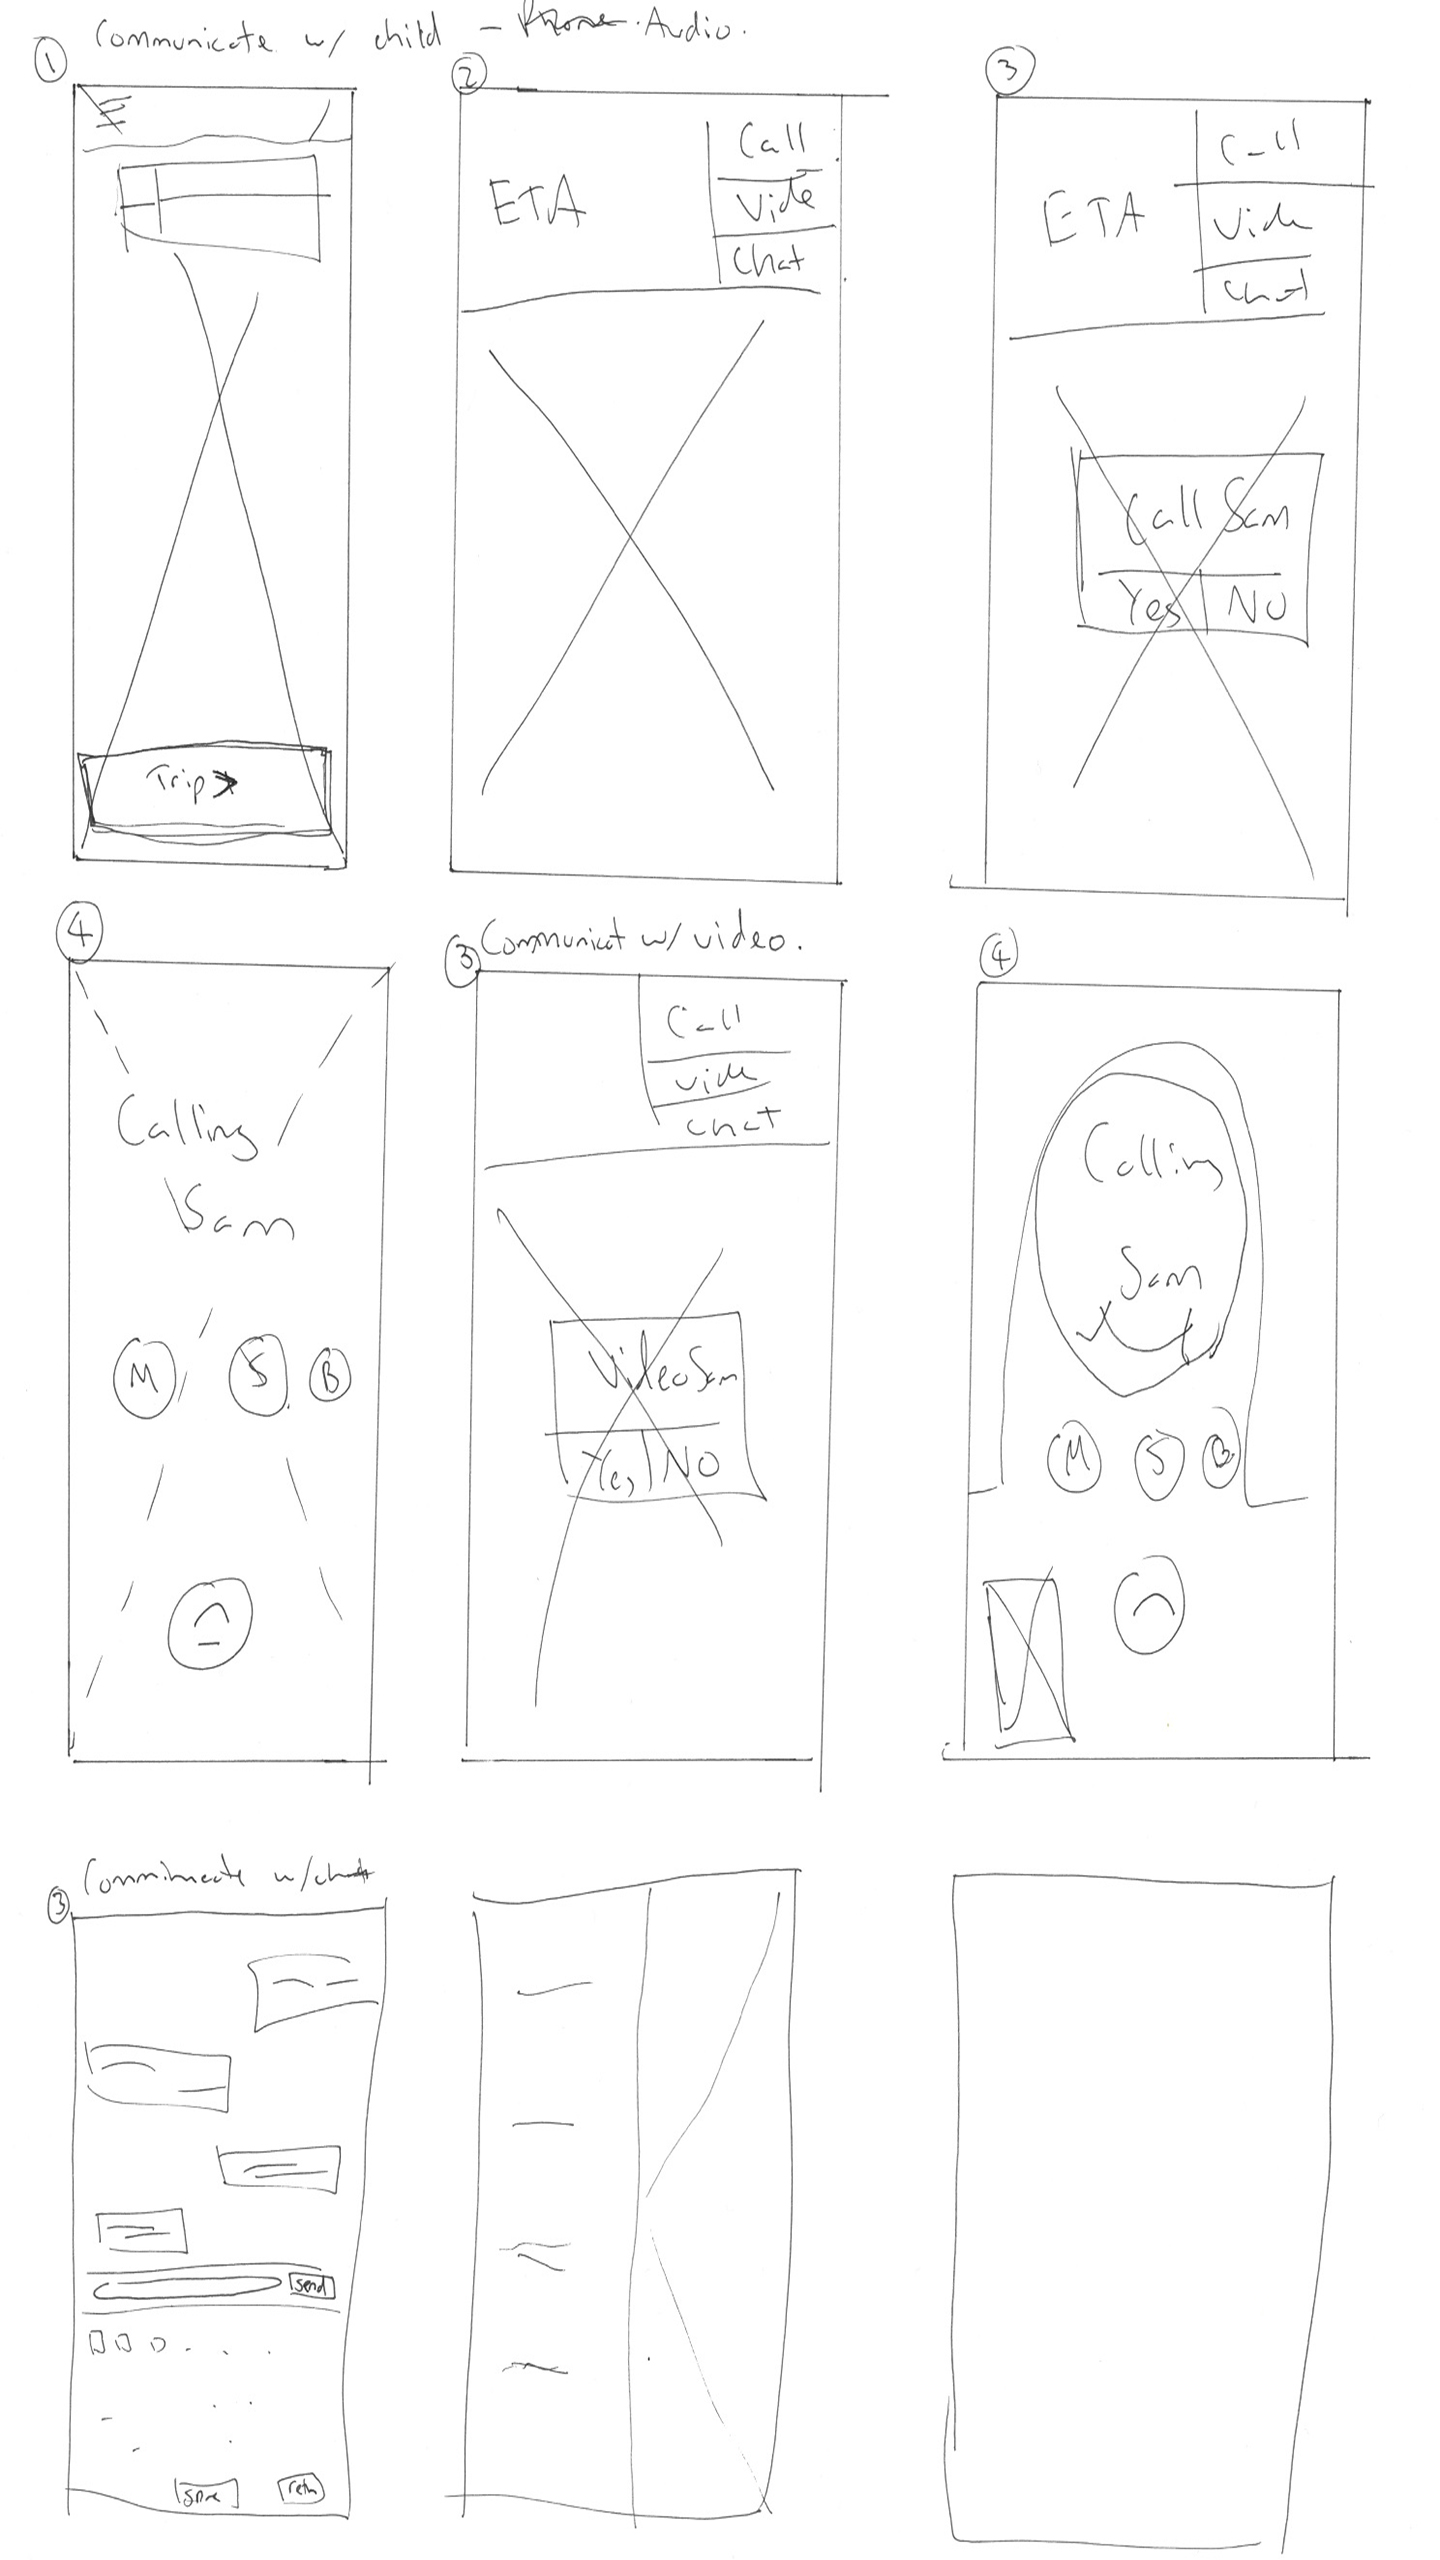 Communicate w/ child - Phone. Audio.
1
2
3
Call
Vide
Chat
ETA
Call
Vide
Chat
ETA
Call Sam
Yes NO
Trip
4
Calling
Sam
M S B
Communicat w/ video.
3
Call
Vide
Chat
Video Sam
Yes NO
4
Calling
Sam
M S B
Commincate w/ chat
3
send
retn